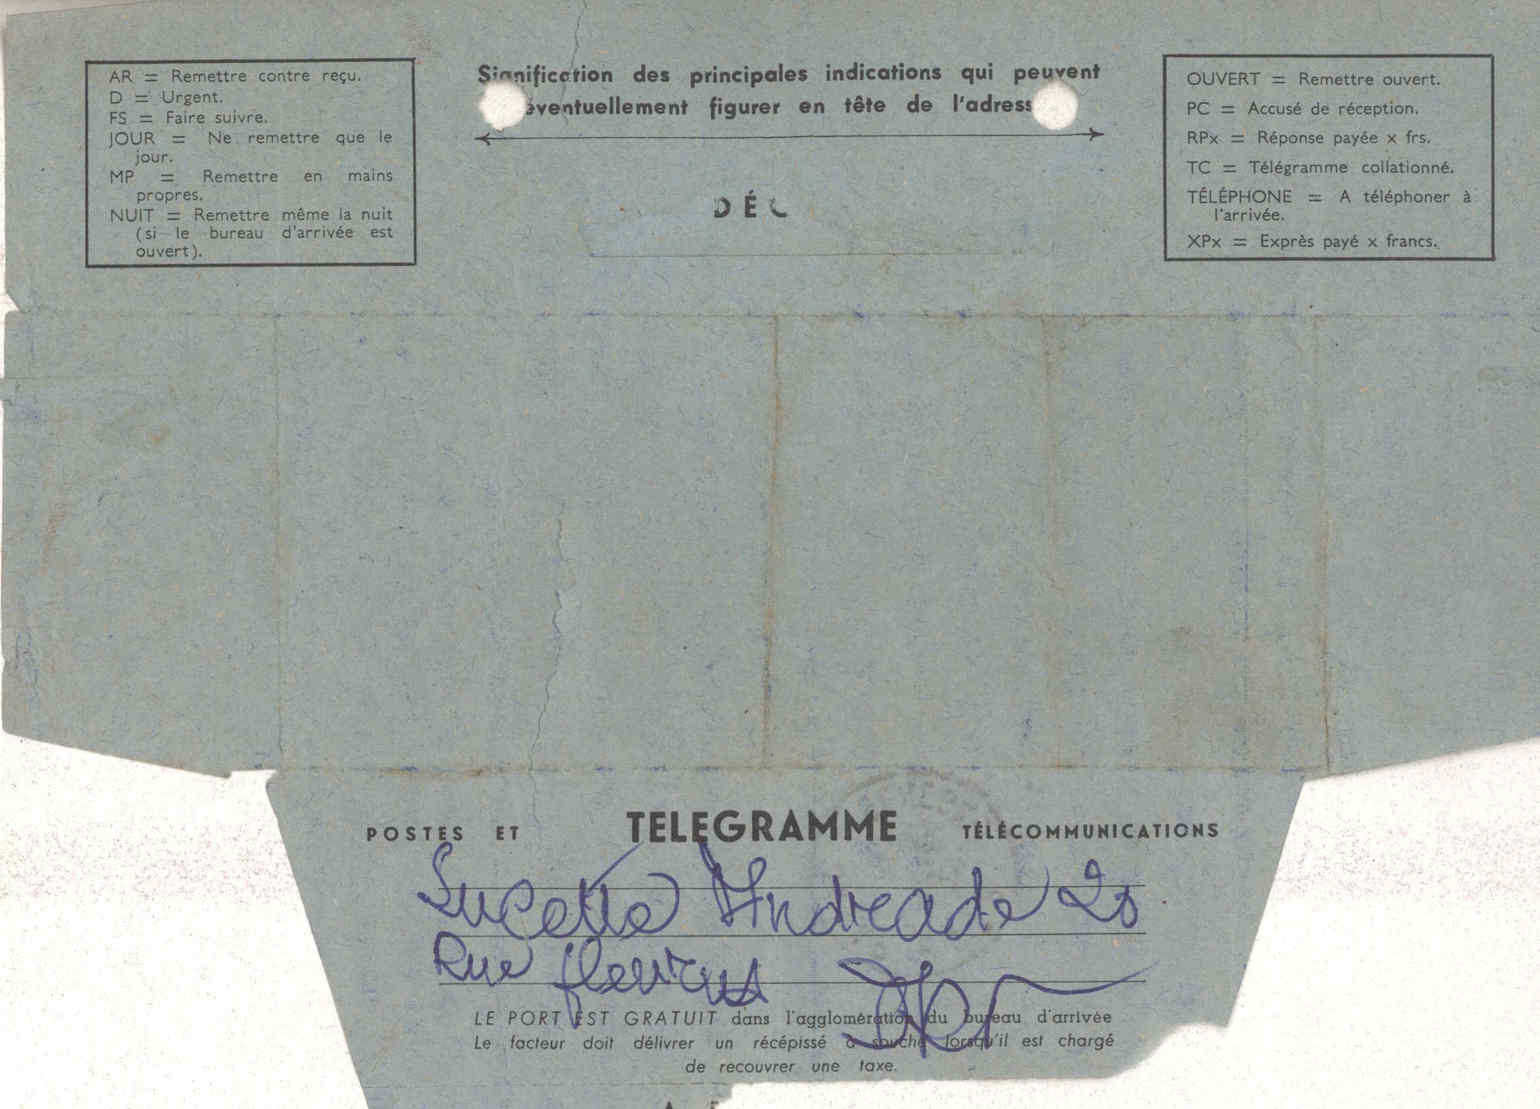 AR = Remettre contre reçu.
D = Urgent.
FS = Faire suivre.
JOUR = Ne remettre que le
jour.
MP = Remettre en mains
propres.
NUIT = Remettre même la nuit
(si le bureau d'arrivée est
ouvert).
Signification des principales indications qui peuvent
éventuellement figurer en tête de l'adress
DÉC
OUVERT = Remettre ouvert.
PC = Accusé de réception.
RPx = Réponse payée x frs.
TC = Télégramme collationné.
TÉLÉPHONE = A téléphoner à
l'arrivée.
XPx = Exprès payé x francs.
POSTES ET TELEGRAMME TÉLÉCOMMUNICATIONS
Lucette Andreade 20
Rue fleurus
LE PORT EST GRATUIT dans l'agglomération du bureau d'arrivée
Le facteur doit délivrer un récépissé à souche lorsqu'il est chargé
de recouvrer une taxe.